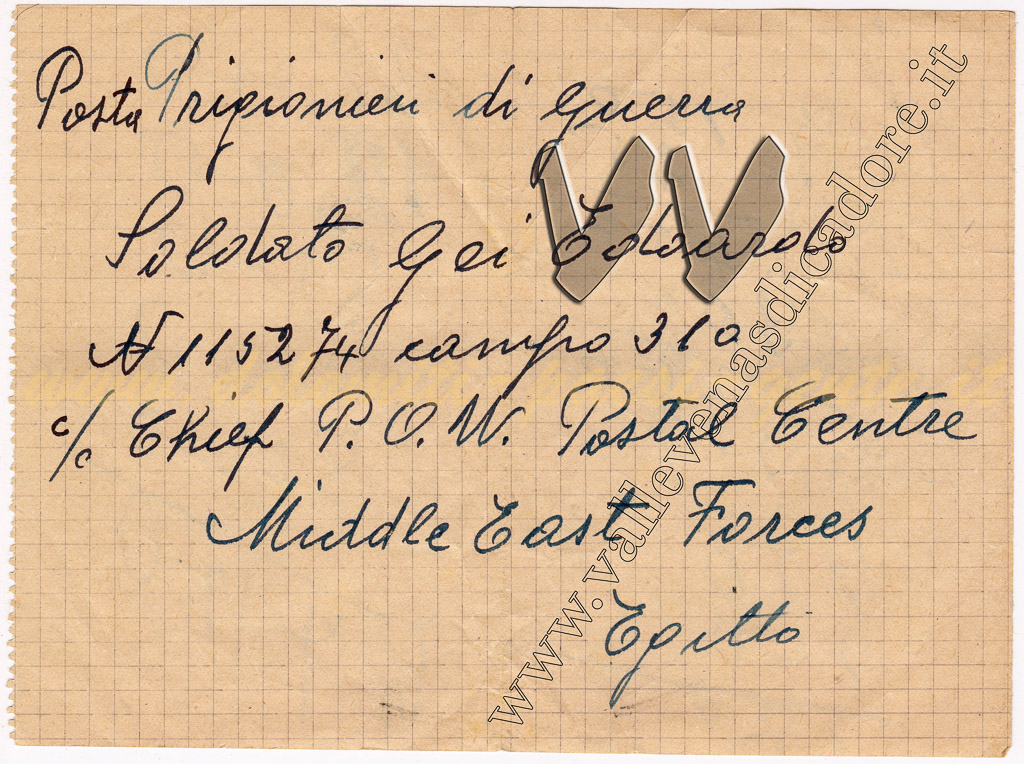 Posta Prigionieri di Guerra
Soldato Gei Edoardo
N 115274 campo 310
c/o Chief P.O.W. Postal Centre
Middle East Forces
Egitto
www.vallevenasdicadore.it
VV